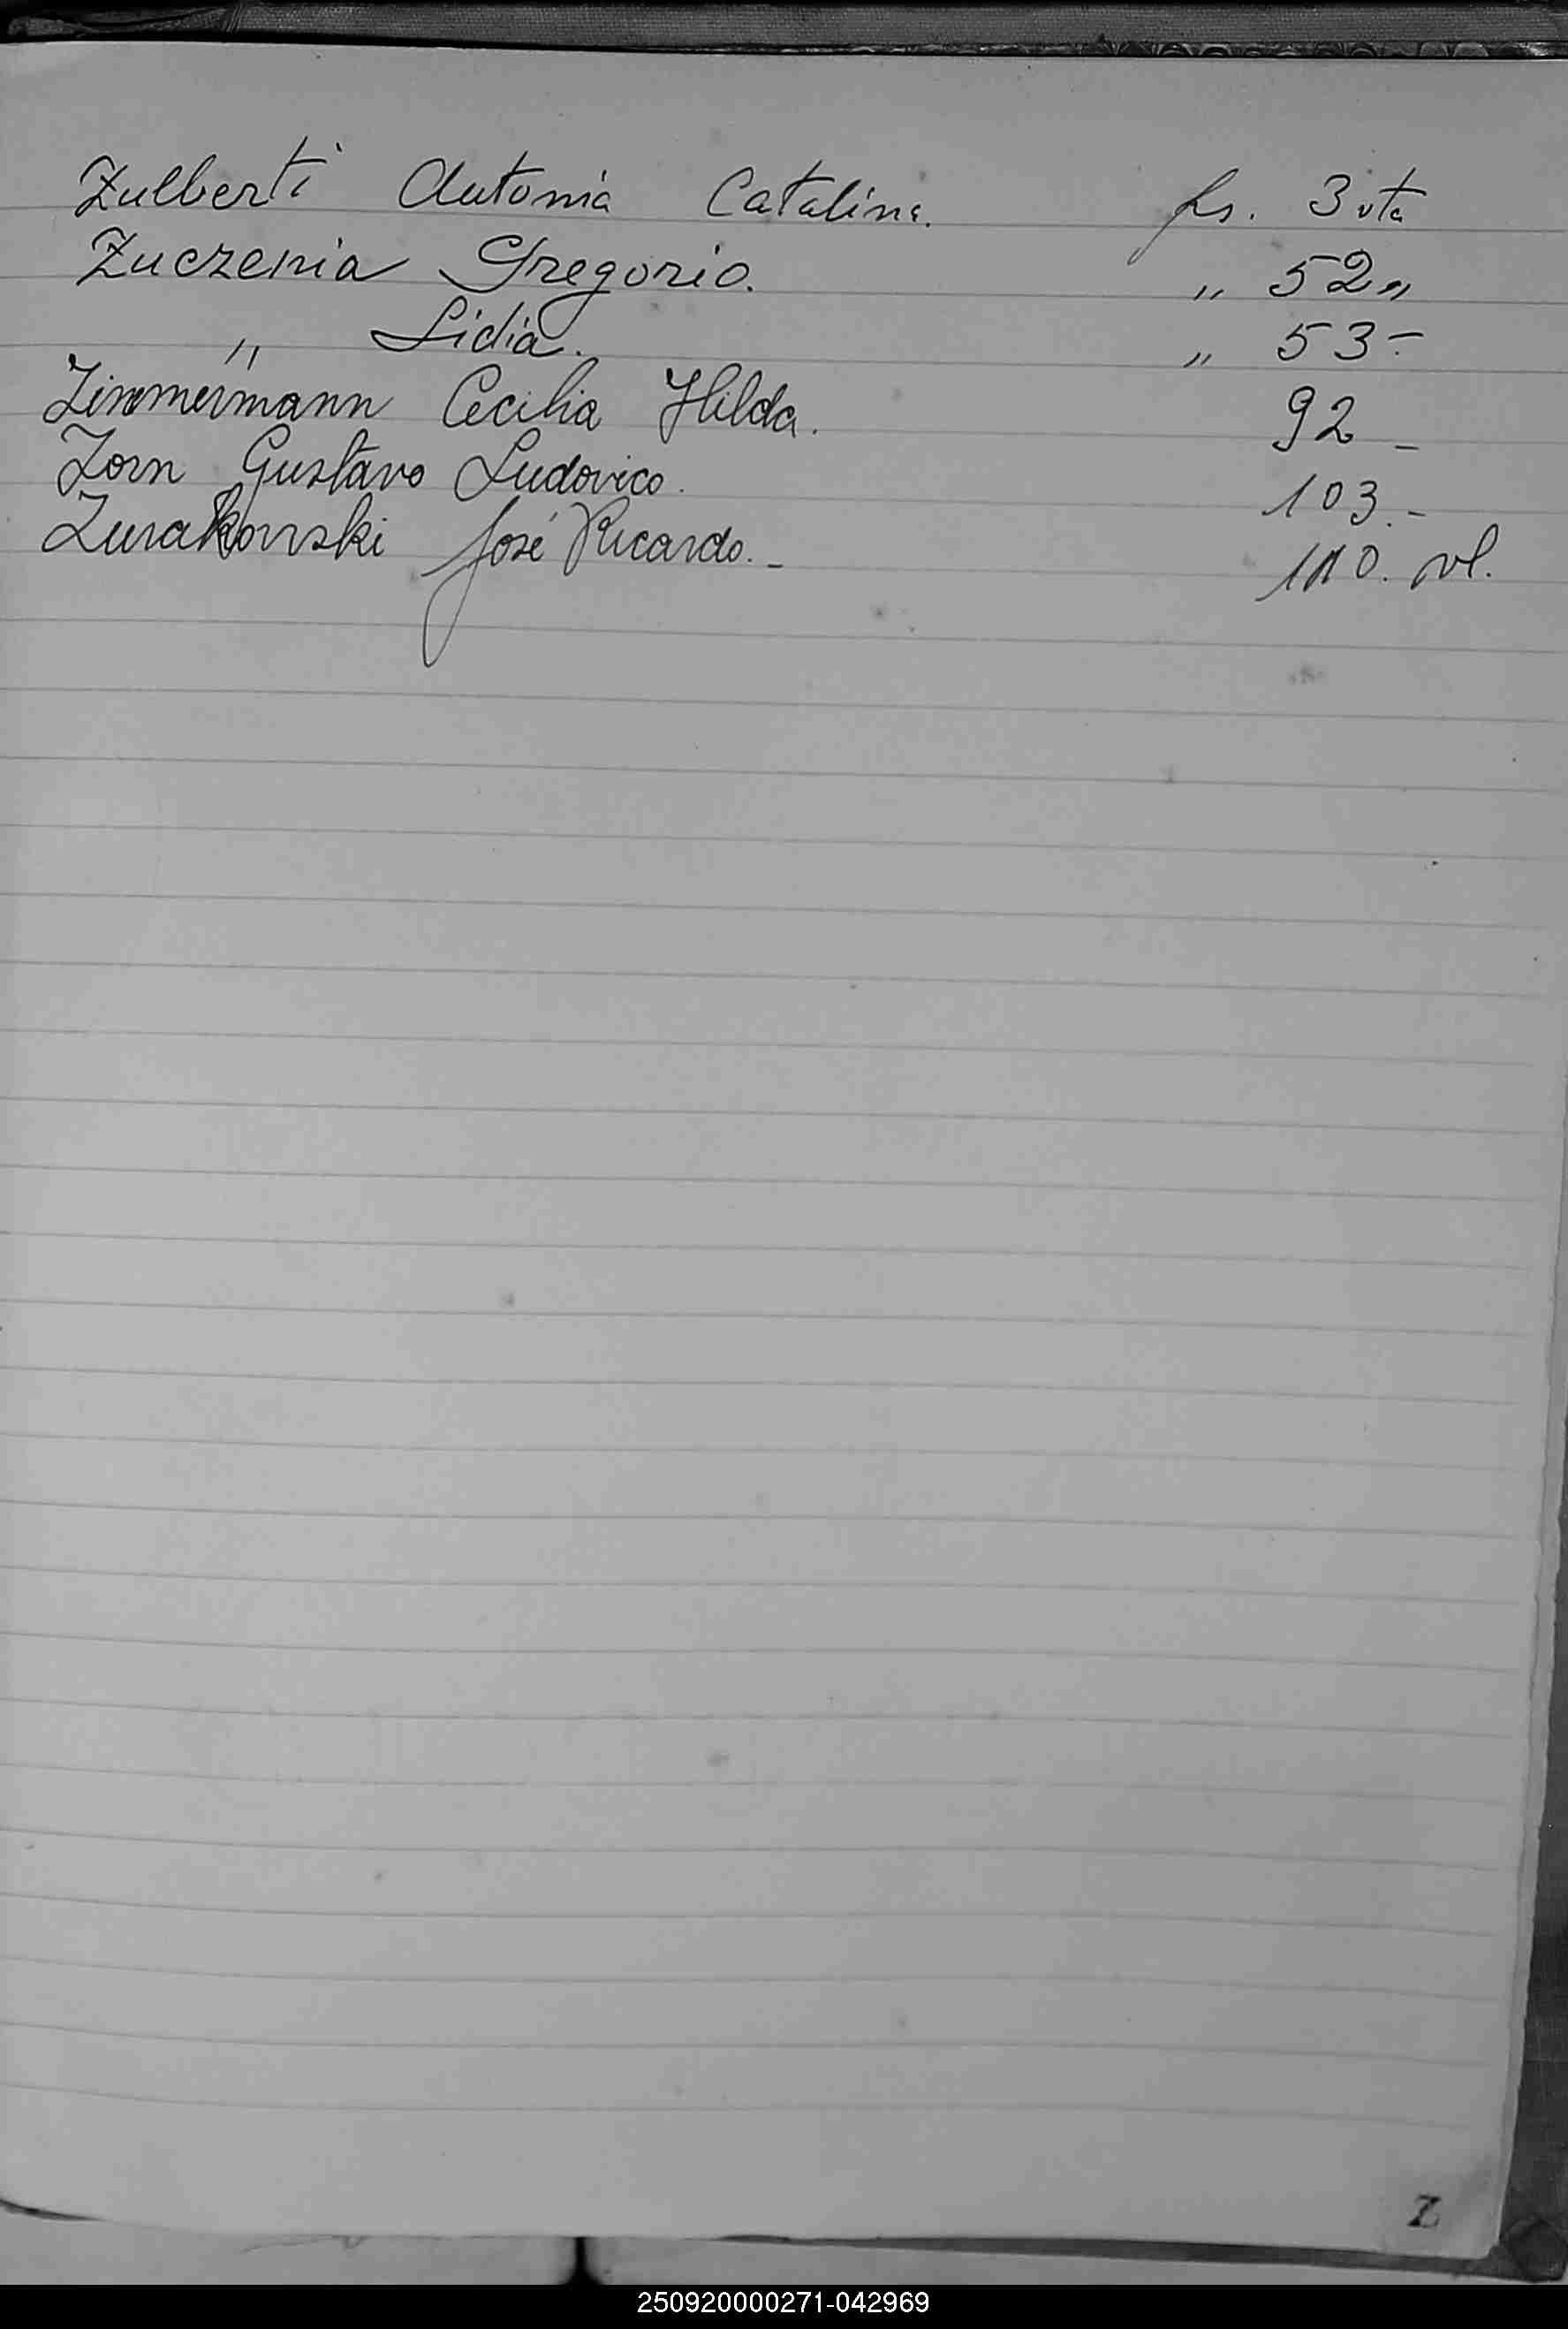 Zulberti Antonia Catalina. fs. 3 vta
Zuczenia Gregorio. „ 52 „
„ Lidia. „ 53 -
Zimmermann Cecilia Hilda. 92 -
Zorn Gustavo Ludovico. 103. -
Zurakowski José Ricardo. - 110. vl.
Z
250920000271-042969